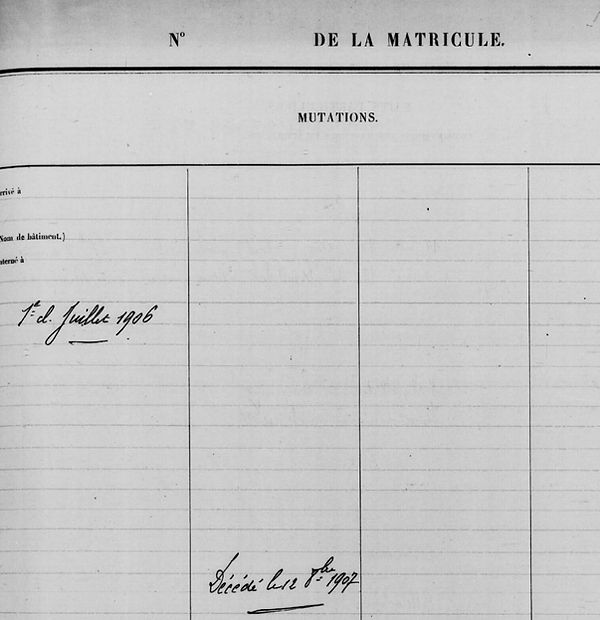 N° DE LA MATRICULE.
MUTATIONS.
rrivé à
Nom de bâtiment.)
nterné à
1re cl. Juillet 1906
Décédé le 12 8bre 1907